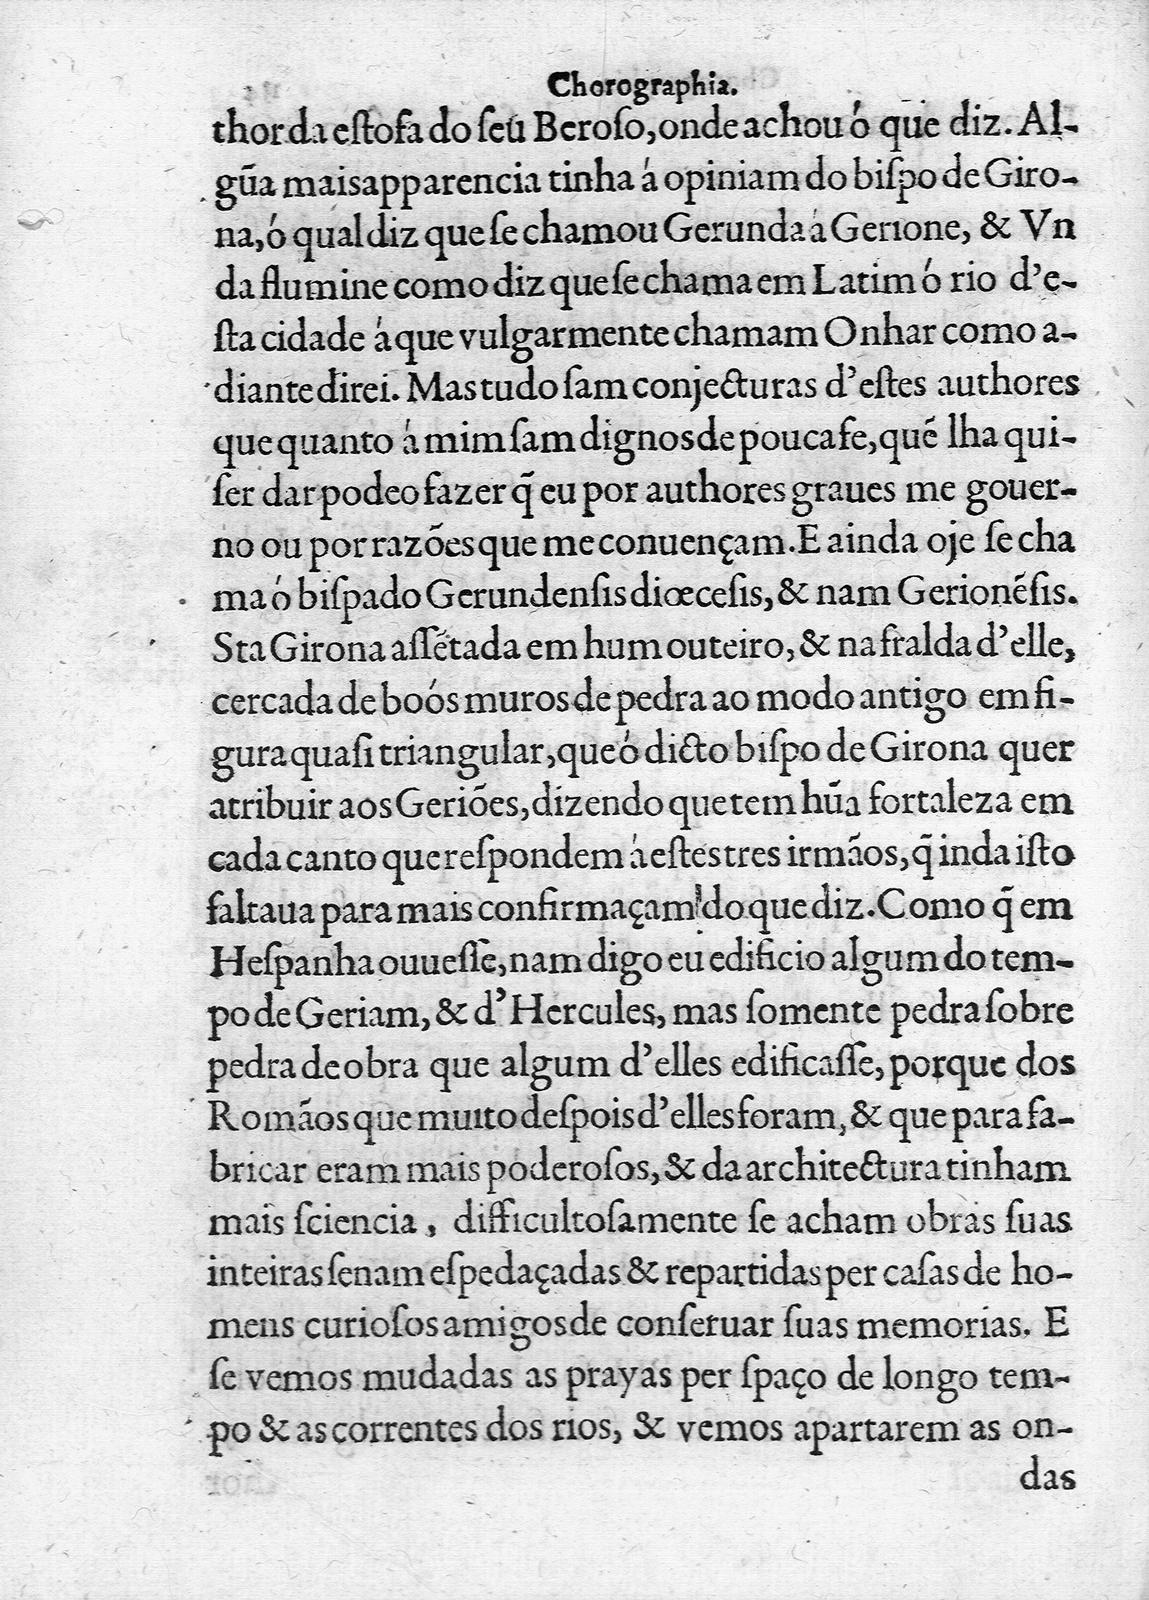 Chorographia.
thor da eſtofa do ſeu Beroſo, onde achou ó que diz. Al-
gũa mais apparencia tinha á opiniam do biſpo de Giro-
na, ó qual diz que ſe chamou Gerunda á Gerione, & Vn
da flumine como diz que ſe chama em Latim ó rio d'e-
ſta cidade á que vulgarmente chamam Onhar como a-
diante direi. Mas tudo ſam conjecturas d'eſtes authores
que quanto á mim ſam dignos de pouca fe, quẽ lha qui-
ſer dar pode o fazer q̃ eu por authores graues me gouer-
no ou por razões que me conuençam. E ainda oje ſe cha
ma ó biſpado Gerundenſis diœceſis, & nam Gerionẽſis.
Sta Girona aſſẽtada em hum outeiro, & na fralda d'elle,
cercada de boós muros de pedra ao modo antigo em fi-
gura quaſi triangular, que ó dicto biſpo de Girona quer
atribuir aos Geriões, dizendo que tem hũa fortaleza em
cada canto que reſpondem á eſtes tres irmãos, q̃ inda iſto
faltaua para mais confirmaçam do que diz. Como q̃ em
Heſpanha ouueſſe, nam digo eu edificio algum do tem-
po de Geriam, & d' Hercules, mas ſomente pedra ſobre
pedra de obra que algum d'elles edificaſſe, porque dos
Romãos que muito deſpois d'elles foram, & que para fa-
bricar eram mais poderoſos, & da architectura tinham
mais ſciencia, difficultoſamente ſe acham obras ſuas
inteiras ſenam eſpedaçadas & repartidas per caſas de ho-
mens curioſos amigos de conſeruar ſuas memorias. E
ſe vemos mudadas as prayas per ſpaço de longo tem-
po & as correntes dos rios, & vemos apartarem as on-
das